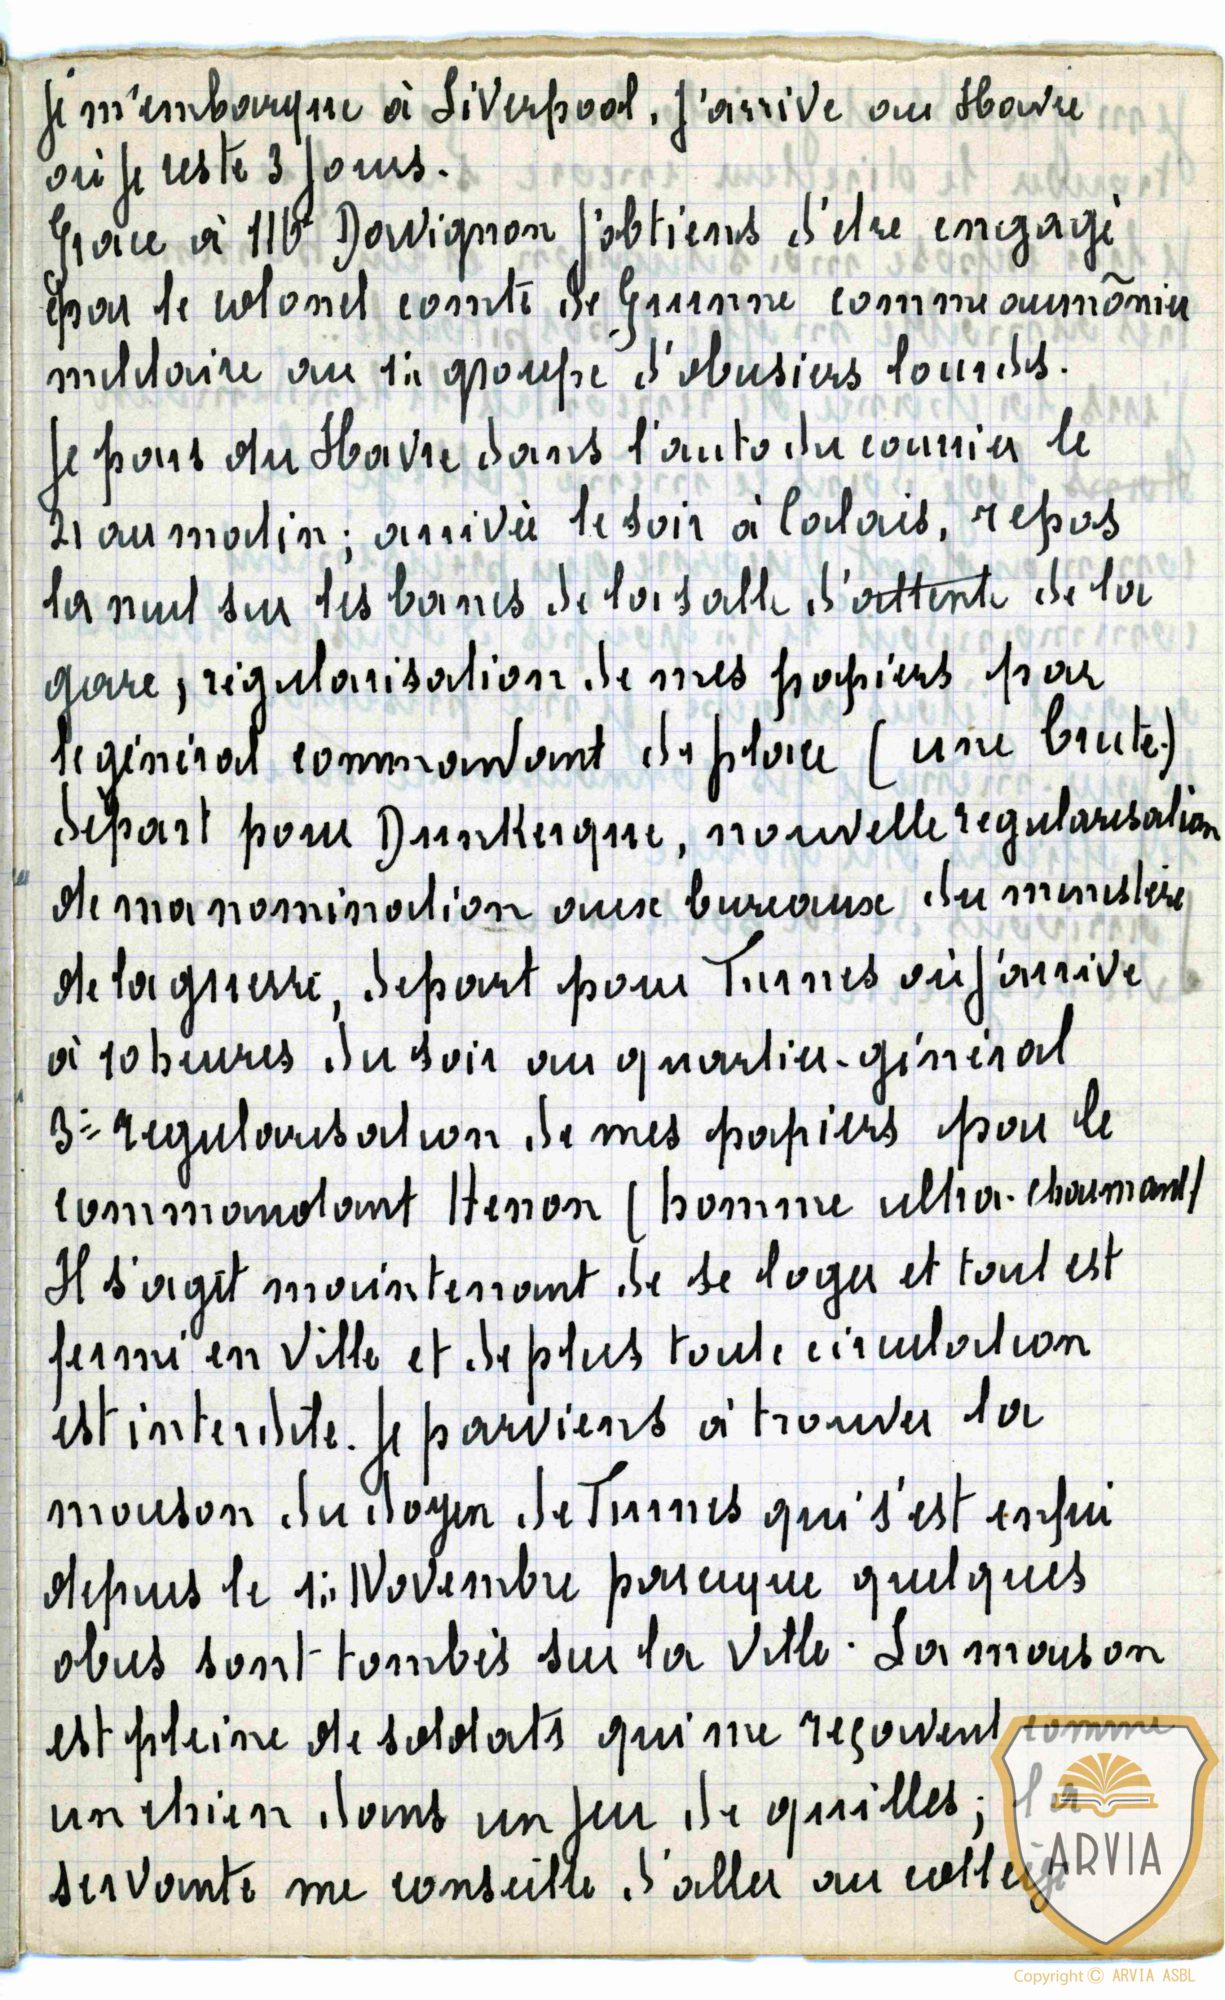 Je m'embarque à Liverpool. J'arrive au Havre
où je reste 3 jours.
Grace à Mr Davignon j'obtiens d'être engagé
par le colonel comte de Grunne comme aumônier
militaire au 1er groupe d'obusiers lourds.
Je pars du Havre dans l'auto du courrier le
21 au matin; arrivée le soir à Calais, repos
la nuit sur les bancs de la salle d'attente de la
gare, régularisation de mes papiers par
le général commandant de place (une brute.)
départ pour Dunkerque, nouvelle regularisation
de ma nomination aux bureaux du ministère
de la guerre, depart pour Furnes où j'arrive
à 10 heures du soir au quartier-général
3e regularisation de mes papiers par le
commandant Henon (homme ultra-charmant)
Il s'agit maintenant de se loger et tout est
fermé en Ville et de plus toute circulation
est interdite. Je parviens à trouver la
maison du doyen de Furnes qui s'est enfui
depuis le 1er Novembre parceque quelques
obus sont tombés sur la Ville. La maison
est pleine de soldats qui me reçoivent comme
un chien dans un jeu de quilles; la
servante me conseille d'aller au collège
ARVIA
Copyright © ARVIA ASBL